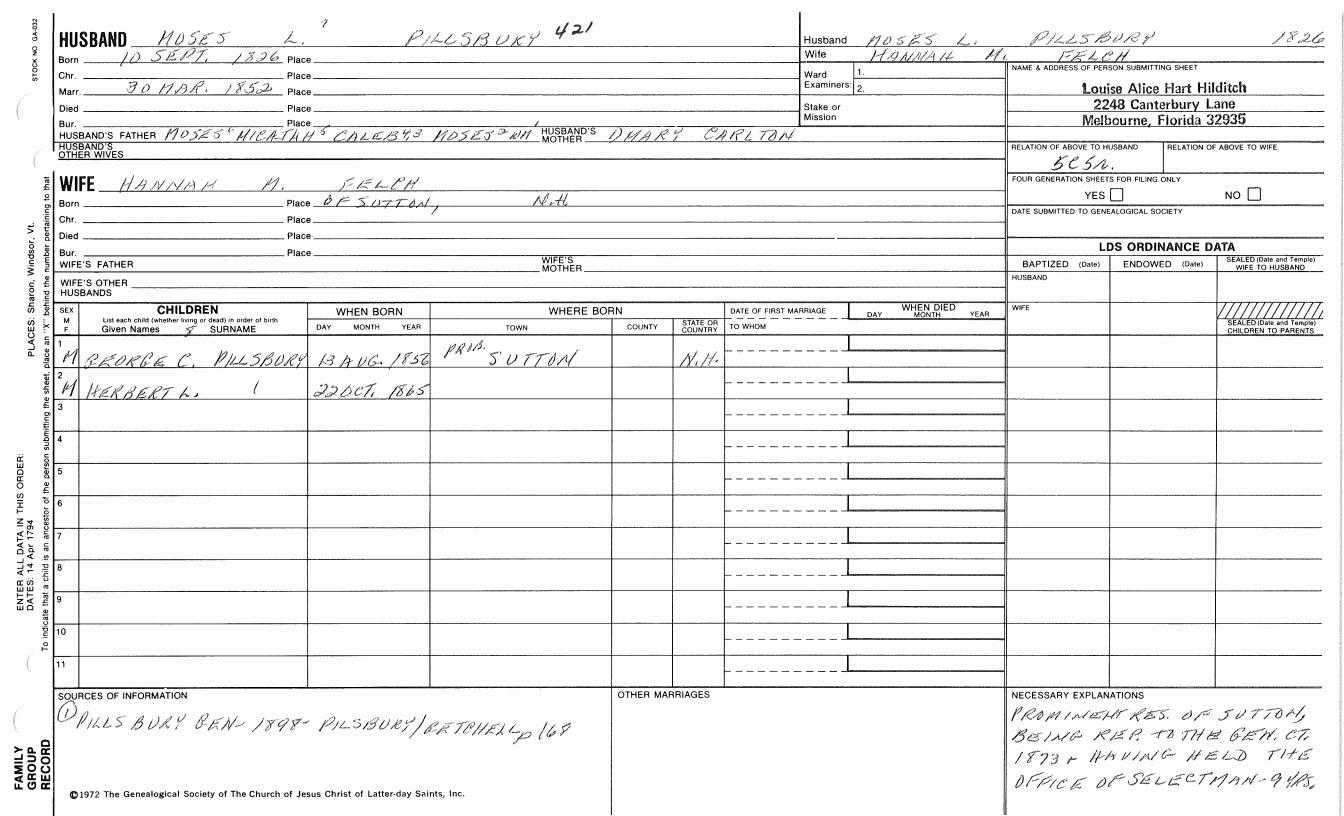 STOCK NO. GA-032
HUSBAND MOSES L. ? PILLSBURY 421
Born 10 SEPT. 1826 Place
Chr. Place
Marr. 30 MAR. 1852 Place
Died Place
Bur. Place
HUSBAND'S FATHER MOSES 6 MICAJAH 5 CALEB 4 3 MOSES 2 WM HUSBAND'S MOTHER MARY CARLTON
HUSBAND'S OTHER WIVES
Husband MOSES L. PILLSBURY 1826
Wife HANNAH M. FELCH
Ward Examiners: 1.
2.
Stake or Mission
NAME & ADDRESS OF PERSON SUBMITTING SHEET
Louise Alice Hart Hilditch
2248 Canterbury Lane
Melbourne, Florida 32935
RELATION OF ABOVE TO HUSBAND RELATION OF ABOVE TO WIFE
FOUR GENERATION SHEETS FOR FILING ONLY
YES NO
DATE SUBMITTED TO GENEALOGICAL SOCIETY
WIFE HANNAH M. FELCH
Born Place OF SUTTON, N.H.
Chr. Place
Died Place
Bur. Place
WIFE'S FATHER WIFE'S MOTHER
WIFE'S OTHER HUSBANDS
LDS ORDINANCE DATA
BAPTIZED (Date) ENDOWED (Date) SEALED (Date and Temple) WIFE TO HUSBAND
HUSBAND
WIFE
SEALED (Date and Temple) CHILDREN TO PARENTS
SEX M F
CHILDREN
List each child (whether living or dead) in order of birth
Given Names SURNAME
WHEN BORN
DAY MONTH YEAR
WHERE BORN
TOWN COUNTY STATE OR COUNTRY
DATE OF FIRST MARRIAGE
TO WHOM
WHEN DIED
DAY MONTH YEAR
1 M GEORGE C. PILLSBURY 13 AUG. 1856 PROB. SUTTON N.H.
2 M HERBERT L. 22 OCT. 1865
3
4
5
6
7
8
9
10
11
SOURCES OF INFORMATION
1 PILLSBURY GEN- 1898- PILSBURY/GETCHELL p 168
OTHER MARRIAGES
NECESSARY EXPLANATIONS
PROMINENT RES. OF SUTTON,
BEING REP. TO THE GEN. CT.
1873 + HAVING HELD THE
OFFICE OF SELECTMAN- 9 YRS.
©1972 The Genealogical Society of The Church of Jesus Christ of Latter-day Saints, Inc.
PLACES: Sharon, Windsor, Vt.
To indicate that a child is an ancestor of the person submitting the sheet, place an "X" behind the number pertaining to that
ENTER ALL DATA IN THIS ORDER:
DATES: 14 Apr 1794
FAMILY
GROUP
RECORD